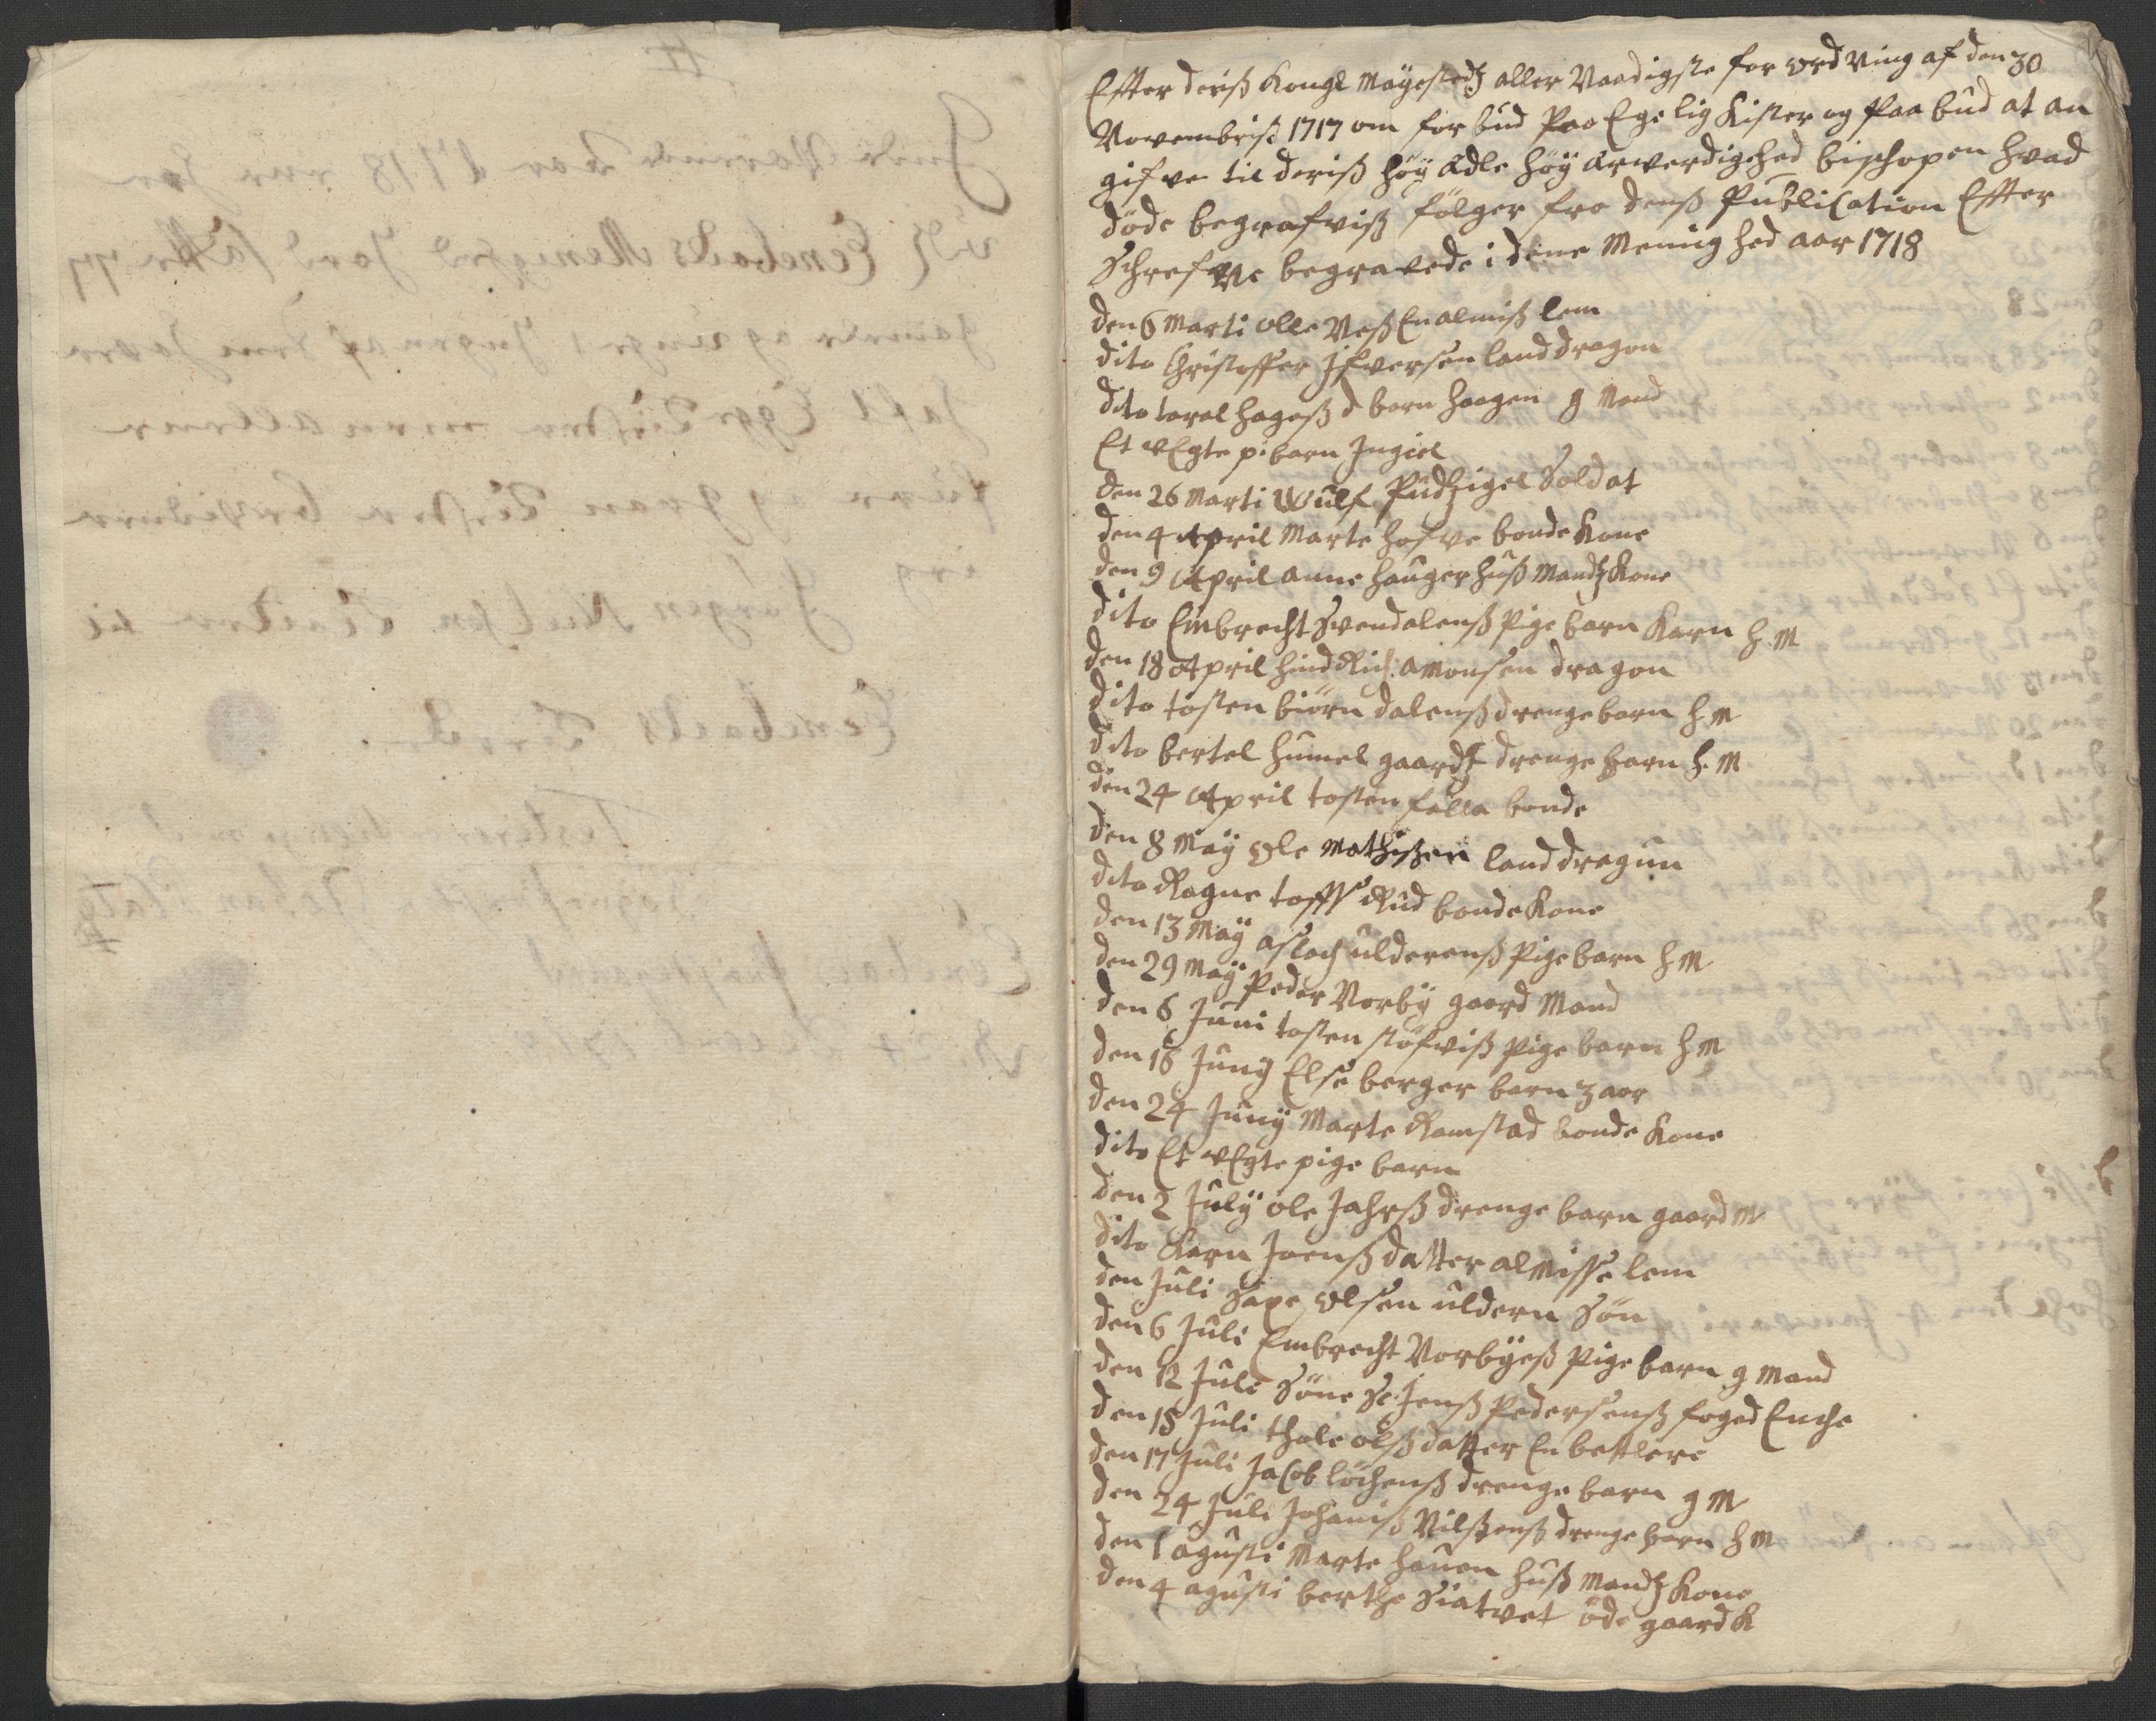 Effter deriß Kongl Mayestedtz aller Naadigste for ordning af den 30
Novembriß 1717 om forbud Paa Ege lig Kister og Paa bud at an
gifve til deriß höy ädle höy ärverdighed bischopen hvad
döde begrafviß fölger fra denß Publication Effter
Schrefne begravede i dene Menighed aar 1718
den 6 Marti olle Neß En almiß lem
dito Christoffer Ifversen land dragon
dito taral hageß d barn haagen g Mand
Et uEgte p: barn Ingiel
den 26 Marti Wulf Pudzigel Soldat
den 4 April Marte hofve bonde Kone
den 9 April anne hauger huß Mandz Kone
dito Embrecht Svendalenß Pige barn Karn h M
den 18 April hindRich amonsen dragon
dito tosten biörn dalenß drenge barn h M
dito bertel humel gaardz drenge barn h. M
den 24 April tosten falla bonde
den 8 May ole Mathißen land dragun
dito Ragne toffsRud bonde Kone
den 13 May aslach ulderenß Pige barn h M
den 29 May Peder Norby gaard Mand
den 6 Juni tosten stöfviß Pige barn h M
den 16 Juny Else berger barn 3 aar
den 24 Juny Marte Ramstad bonde Kone
dito Et uEgte pige barn
den 2 July ole Jahrß drenge barn gaard M
dito Karn Joenß datter almisse lem
den Juli Saxe olsen uldern Sön
den 6 Juli Embrecht Norbyeß Pige barn g Mand
den 12 Juli Söne Sl: Jenß Pedersenß foged Enche
den 15 Juli thole olß datter En bettlere
den 17 Juli Jacob löchenß drenge barn g M
den 24 Juli Johaniß Nilßenß drenge barn h M
den 1 agusti Marte hauen huß Mandz Kone
den 4 agusti berthe Siatvet öde gaard K